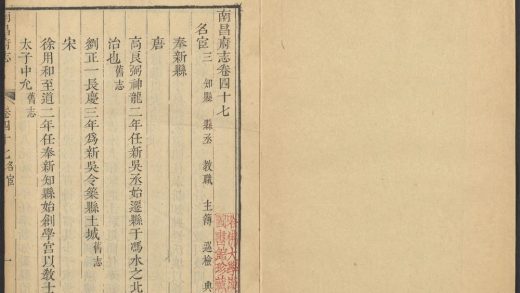 南昌府志卷四十七
名宦三 知縣 縣丞 教職 主簿 巡檢 典
奉新縣
唐
高良弼神龍二年任新吳丞始遷縣于馮水之北
治也舊志
劉正一長慶三年為新吳令築縣土城舊志
宋
徐用和至道二年任奉新知縣始創學宮以教士
太子中允舊志
南昌府志
卷四十七 名宦
一